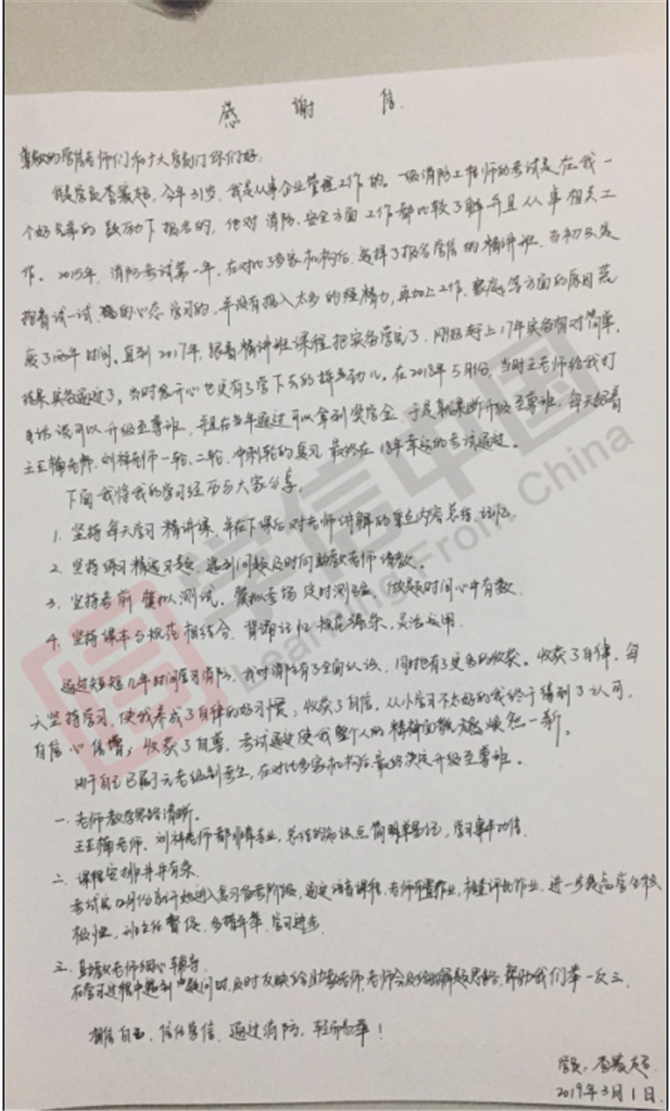 感谢信
尊敬的学信老师们和广大学员们你们好：
我是学员李 超，今年31岁，我是从事企业管理工作的。一级消防工程师的考试是在我一
个好兄弟的鼓动下报名的，他对消防、安全方面工作都比较了解并且从事相关工
作。2015年，消防考试第一年，在对比了多家机构后，选择了报名学信的精讲班，当初只是
抱着试一试的心态学习的，并没有投入太多的经精力，再加上工作、家庭等方面的原因荒
废了两年时间。直到2017年，跟着精讲班课程把实务学完了，刚好赶上17年实务相对简单，
结果实务通过了。当时很开心也更有了学下去的 劲儿。在2018年5月份，当时王老师给我打
电话说可以升级至尊班，并且在当年通过可以拿到奖学金，于是就果断升级至尊班，每天跟着
王亚楠老师、刘祥老师一轮、二轮、冲刺轮的复习最终在18年幸运的考试通过。
下面我将我的学习经历与大家分享。
1. 坚持每天学习精讲课，并在下课后对老师讲解的重点内容总结、记忆。
2. 坚持练习精选习题，遇到问题及时向助教老师请教。
3. 坚持考前模拟测试，模拟考场定时测验，做题时间心中有数。
4. 坚持课本与规范相结合，背诵记忆规范条，灵活应用。
通过短短几年时间学习消防，我对消防有了全面认识，同时也有了更多的收获。收获了自律，每
天坚持学习，使我养成了自律的好习惯；收获了自信，从小学习不太好的我终于得到了认可，
自信心倍增；收获了自尊，考试通过使我整个人的精神面貌焕然一新。
由于自己已属于元老级别考生，在对比多家机构后最终决定升级至尊班。
一. 老师教学思路清晰。
王亚楠老师、刘祥老师都非常专业，总结的知识点简明单易记，学习事半功倍。
二. 课程安排井井有条。
考试完12月份就开始进入复习备考阶段，通过语音课程，老师布置作业，检查评比作业，进一步提高学生积
极性，班主任督促，多措并举，学习进步
三. 助教老师细心辅导。
在学习过程中遇到疑问时，及时反映给助教老师，老师会及时给解题思路，帮助我们举一反三。
相信自己，信任学信，通过消防，轻而易举！
学员：李 超
2019年3月1日.
学信中国
Learning From China